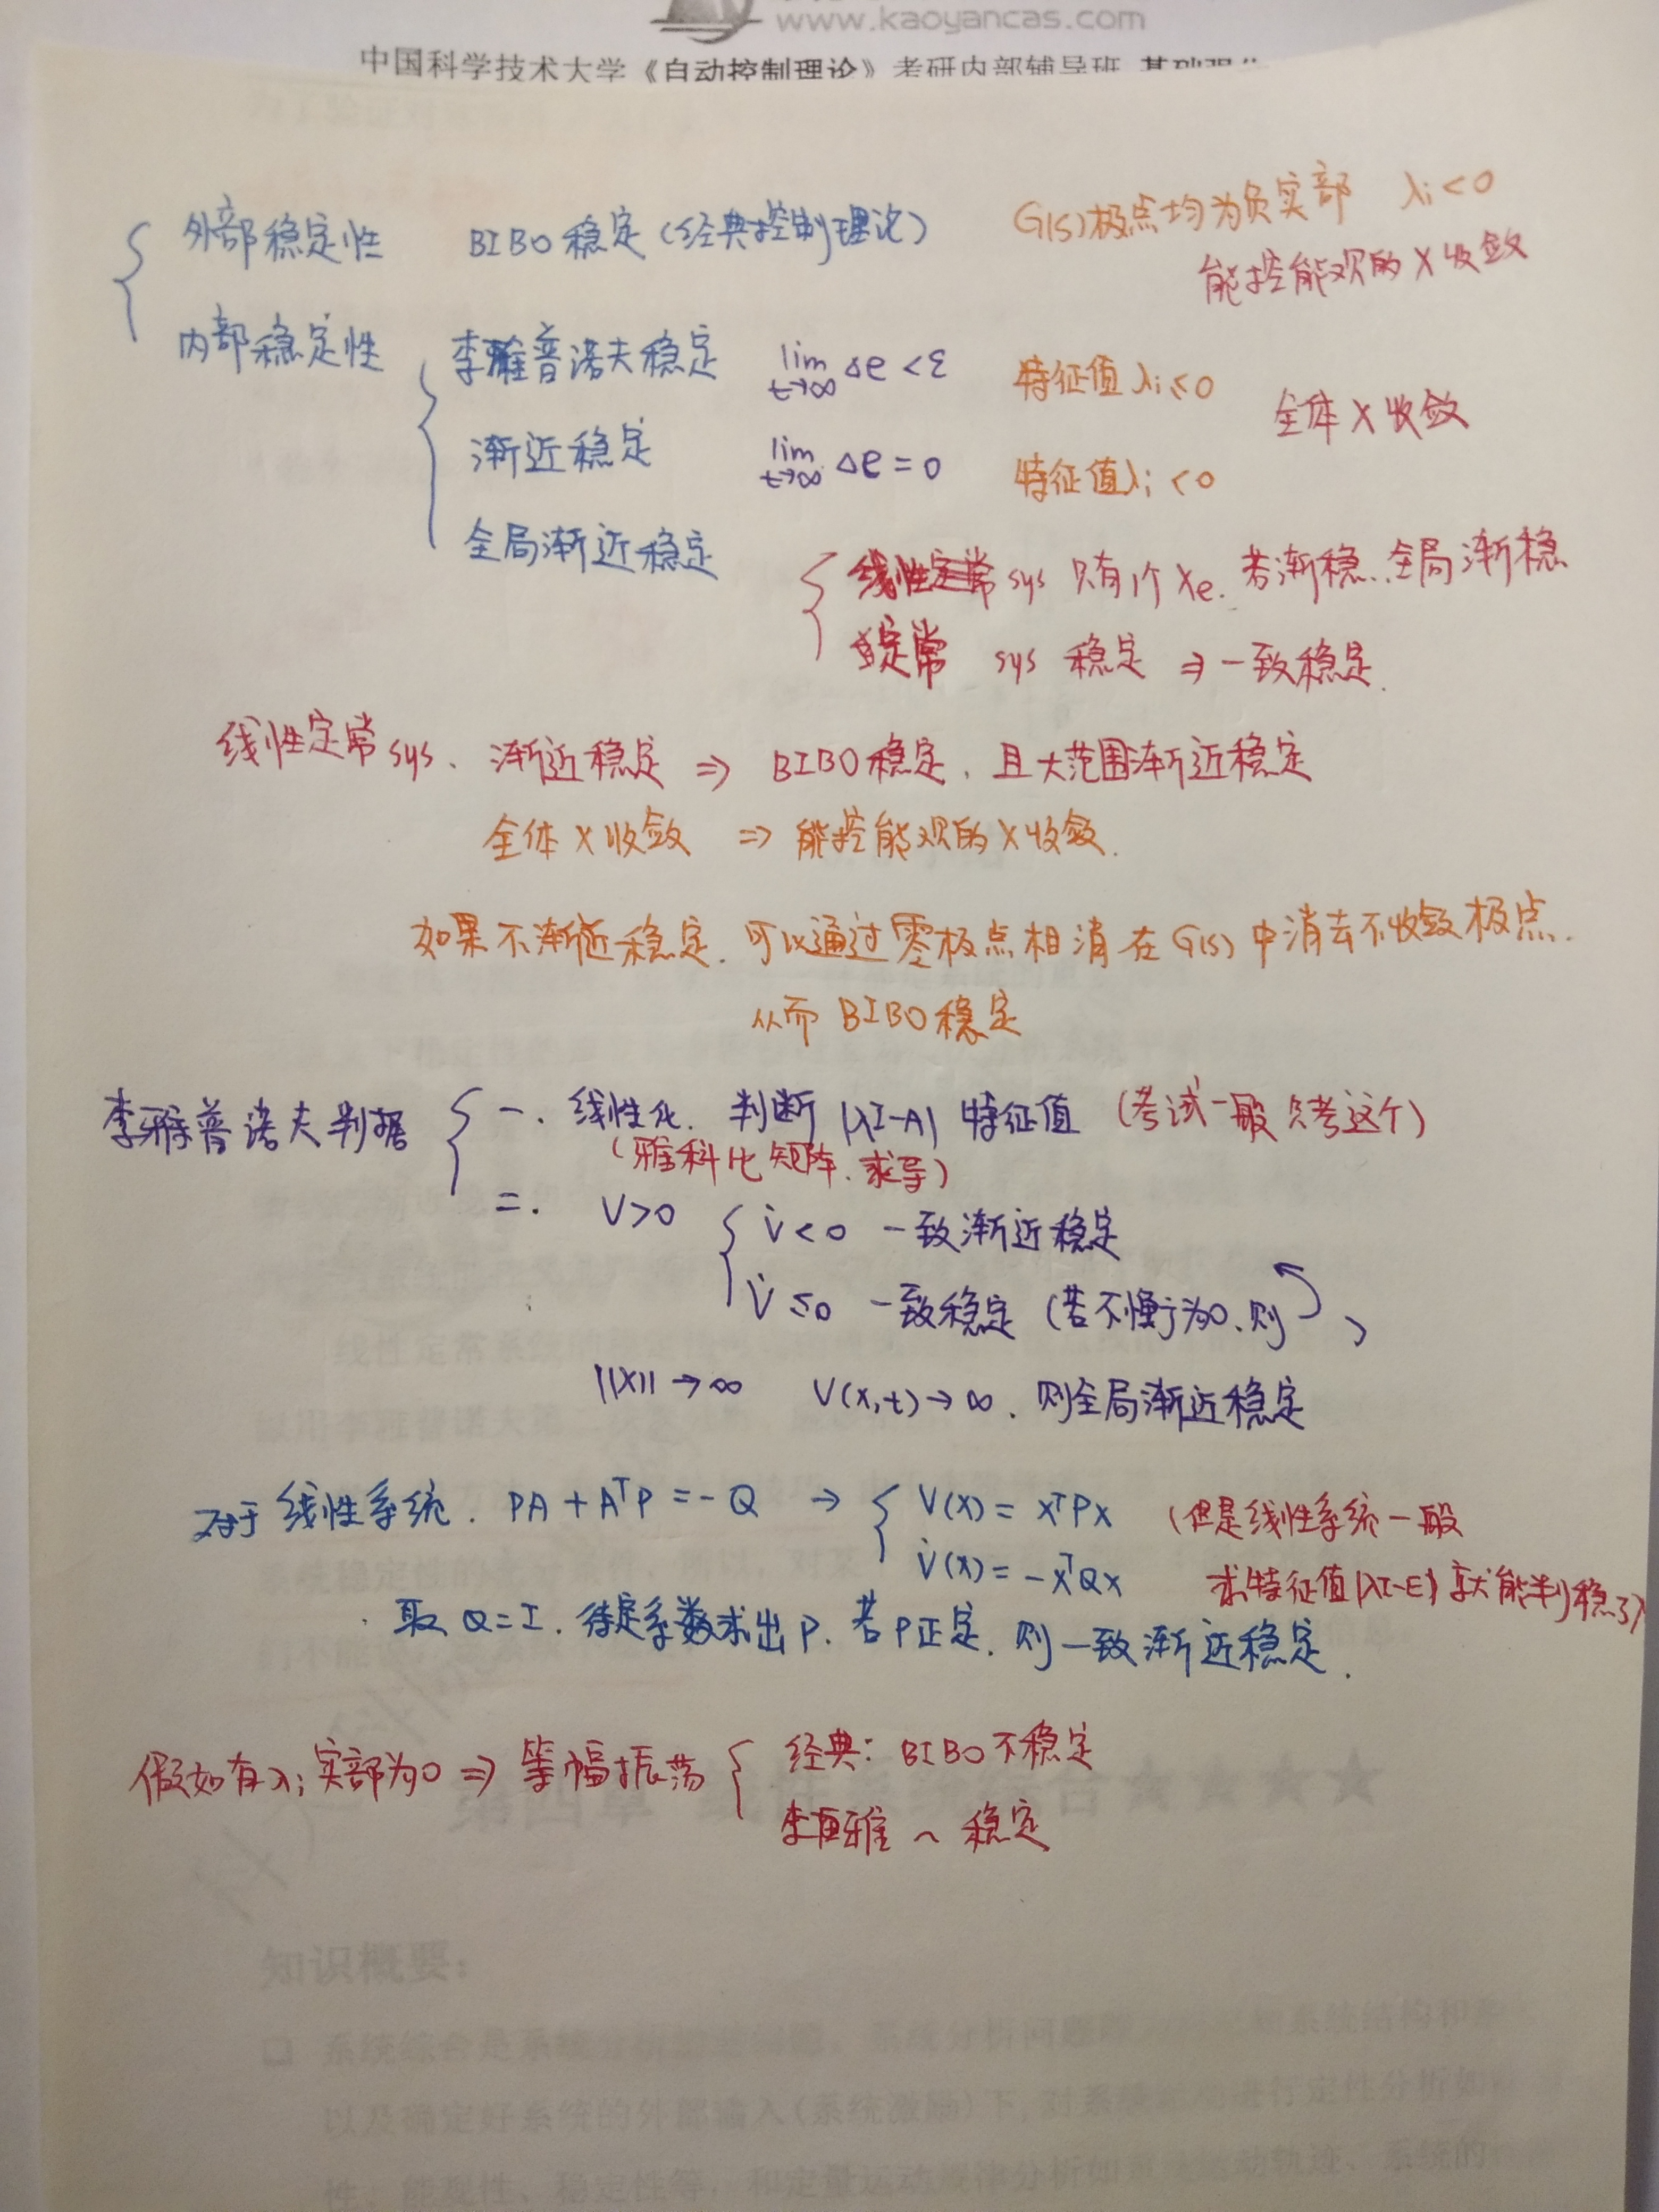 www.kaoyancas.com
中国科学技术大学《自动控制理论》考研内部辅导班 基础强化
外部稳定性 BIBO稳定(经典控制理论) G(s)极点均为负实部 λi<0
能控能观的X收敛
内部稳定性 李雅普诺夫稳定 lim t→∞ Δe<ε 特征值λi≤0
全体X收敛
渐近稳定 lim t→∞ Δe=0 特征值λi<0
全局渐近稳定
线性定常sys 只有1个Xe. 若渐稳、全局渐稳
定常 sys 稳定 ⇒ 一致稳定.
线性定常sys、渐近稳定 ⇒ BIBO稳定、且大范围渐近稳定
全体X收敛 ⇒ 能控能观的X收敛.
如果不渐近稳定.可以通过零极点相消在G(s)中消去不收敛极点.
从而BIBO稳定
李雅普诺夫判据 一. 线性化. 判断|λI-A|特征值(考试一般只考这个)
(雅科比矩阵.求导)
二. V>0 V̇<0 一致渐近稳定
V̇≤0 一致稳定(若不恒为0.则 )
||X||→∞ V(x,t)→∞.则全局渐近稳定
对于线性系统. PA+AᵀP=-Q → V(x)=xᵀPx (但是线性系统一般
V̇(x)=-xᵀQx 求特征值|λI-E|就能判稳了)
取Q=I.待定系数求出P.若P正定.则一致渐近稳定.
假如有λi实部为0 ⇒ 等幅振荡 经典:BIBO不稳定
李雅~稳定
第四章
知识概要: